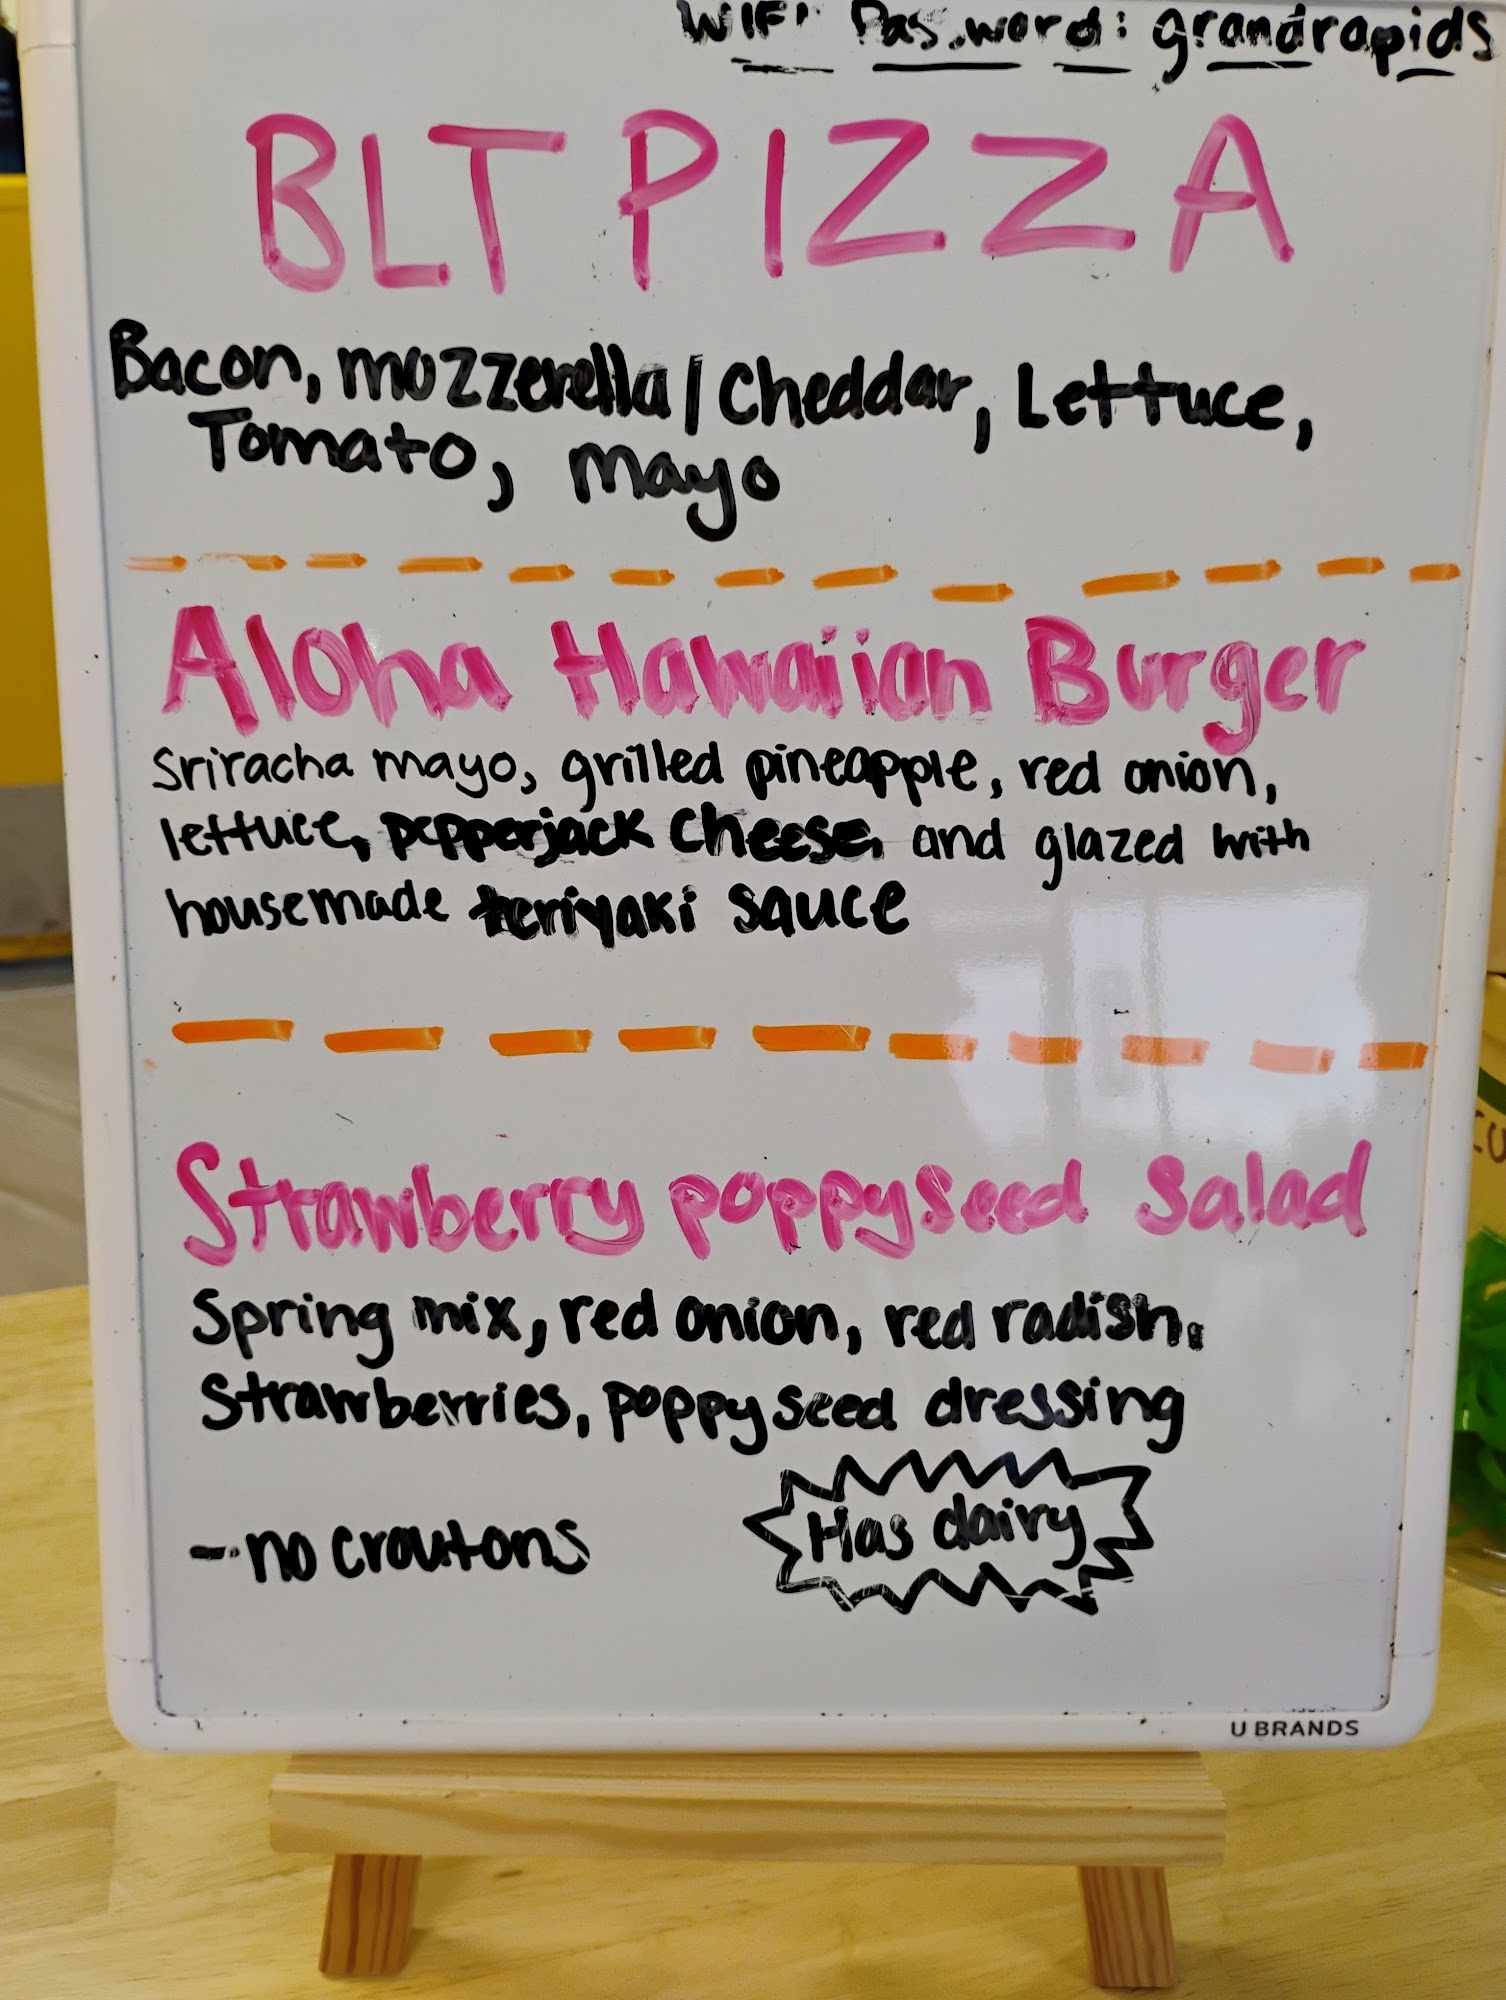 WIFI Password: grandrapids
BLT PIZZA
Bacon, mozzerella/Cheddar, Lettuce,
Tomato, mayo
Aloha Hawaiian Burger
Sriracha mayo, grilled pineapple, red onion,
lettuce, pepperjack cheese, and glazed with
housemade teriyaki sauce
Strawberry poppyseed salad
Spring mix, red onion, red radish,
Strawberries, poppyseed dressing
- no croutons
Has dairy
U BRANDS